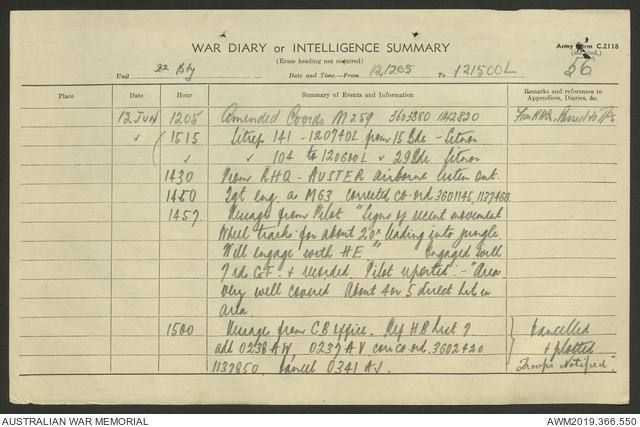 WAR DIARY or INTELLIGENCE SUMMARY
Army Form C.2118
(Erase heading not required)
56
Unit 22 Bty Date and Time—From 121205 To 121500L
Place Date Hour Summary of Events and Information Remarks and references to Appendices, Diaries, &c.
12 Jun 1205 Amended Coords M259 3603880 1142820 From RHQ. Passed to
1515 Sitrep 141 - 120740L from 15 Bde - Sitnor
104 to 120600L 29 Bde Sitnor
1430 From RHQ - AUSTER airborne listen out.
1450 Tgt eng. as M63 corrected co-ord 3601145, 1137460
1457 Message from Pilot "Signs of recent movement
Wheel tracks for about 20x leading into jungle.
Will engage with HE" Engaged with
7 rds G.F. & recorded. Pilot reported:- "Area
very well covered About 4 or 5 direct hits in
area.
1500 Message from C B office. Ref H B List 7
add 0238 AW, 0237 AV co-ord 3602420
1137850 Cancel 0341 AJ.
Cancelled
& plotted
Troops Notified"
AUSTRALIAN WAR MEMORIAL AWM2019.366.550